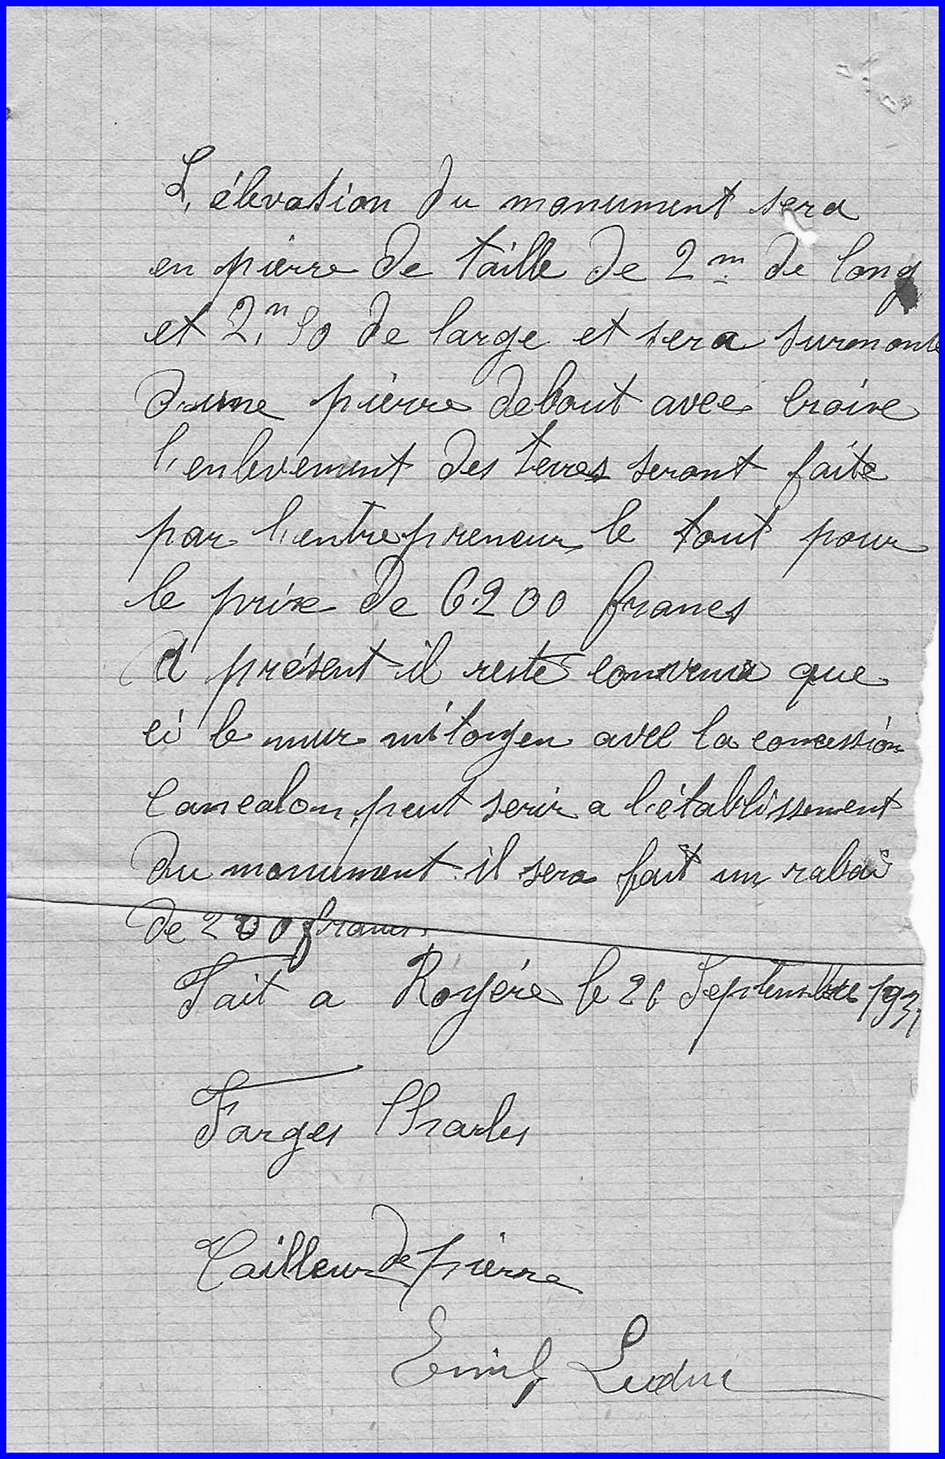 L'élevation du monument sera
en pierre de taille de 2m de long
et 2,m 50 de large et sera surmonté
d'une pierre debout avec croixe
l'enlevement des terres seront faite
par l'entrepreneur le tout pour
le prixe de 6.200 francs
A présent il reste convenu que
ci le mur mitoyen avec la concession
Cancalon, peut serir a l'établissement
du monument il sera fait un rabais
de 200 francs.
Fait a Royére le 26 Septembre
Farges Charles
Tailleur de pierre
Emile Leduc